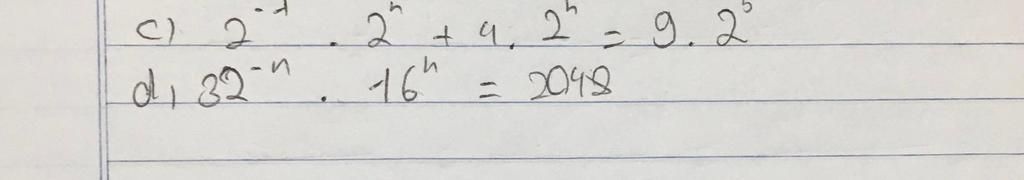 c) 2⁻¹ . 2ⁿ + 4 . 2ⁿ = 9 . 2⁵
d, 32⁻ⁿ . 16ⁿ = 2048